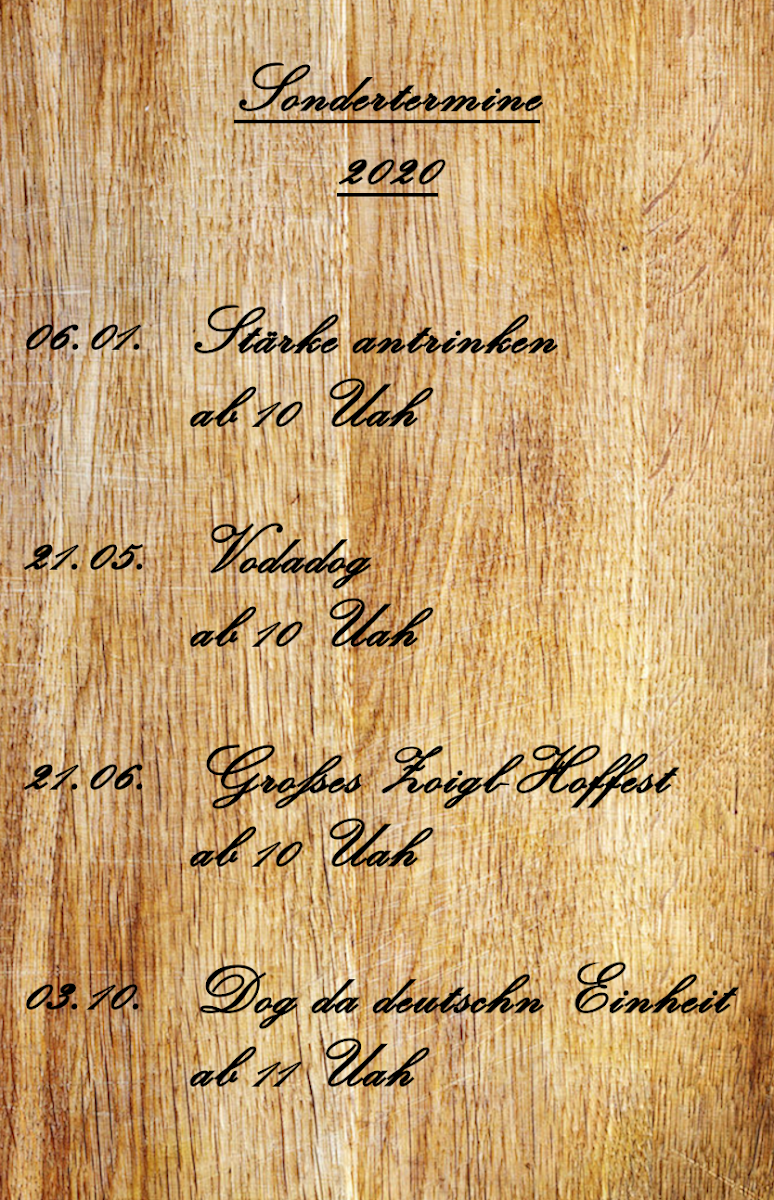 Sondertermine
2020
06.01. Stärke antrinken
ab 10 Uah
21.05. Vodadog
ab 10 Uah
21.06. Großes Zoigl-Hoffest
ab 10 Uah
03.10. Dog da deutschn Einheit
ab 11 Uah